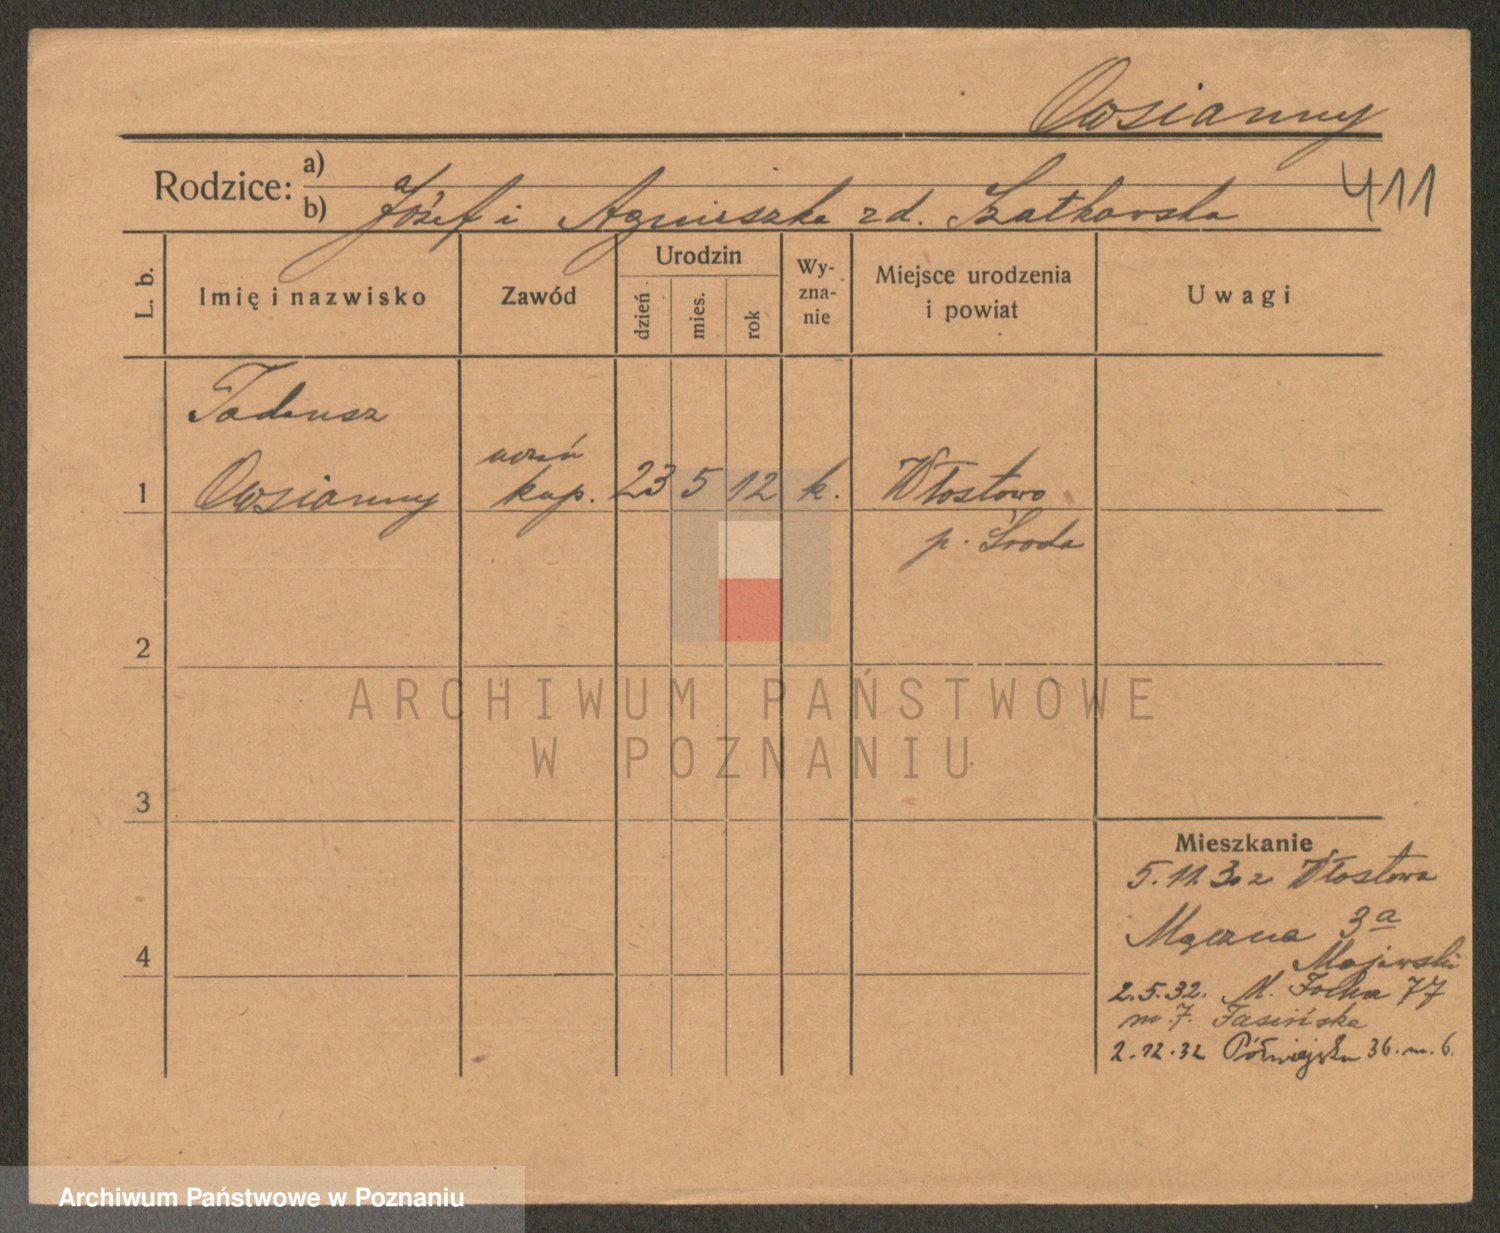 Owsianny
Rodzice: a)
b) Józef i Agnieszka z d. Szatkowska
411
L. b.
Imię i nazwisko
Zawód
Urodzin
dzień
mies.
rok
Wy-
zna-
nie
Miejsce urodzenia
i powiat
Uwagi
Tadeusz
1 Owsianny
uczeń
kup.
23 5 12 k.
Włostowo
p. Środa
2
3
4
ARCHIWUM PAŃSTWOWE
W POZNANIU
Mieszkanie
5.11.30 z Włostowa
Mączna 3a
Majewski
2.5.32. M. Focha 77
m. 7. Jasińska
2.12.32 Półwiejska 36. m. 6.
Archiwum Państwowe w Poznaniu